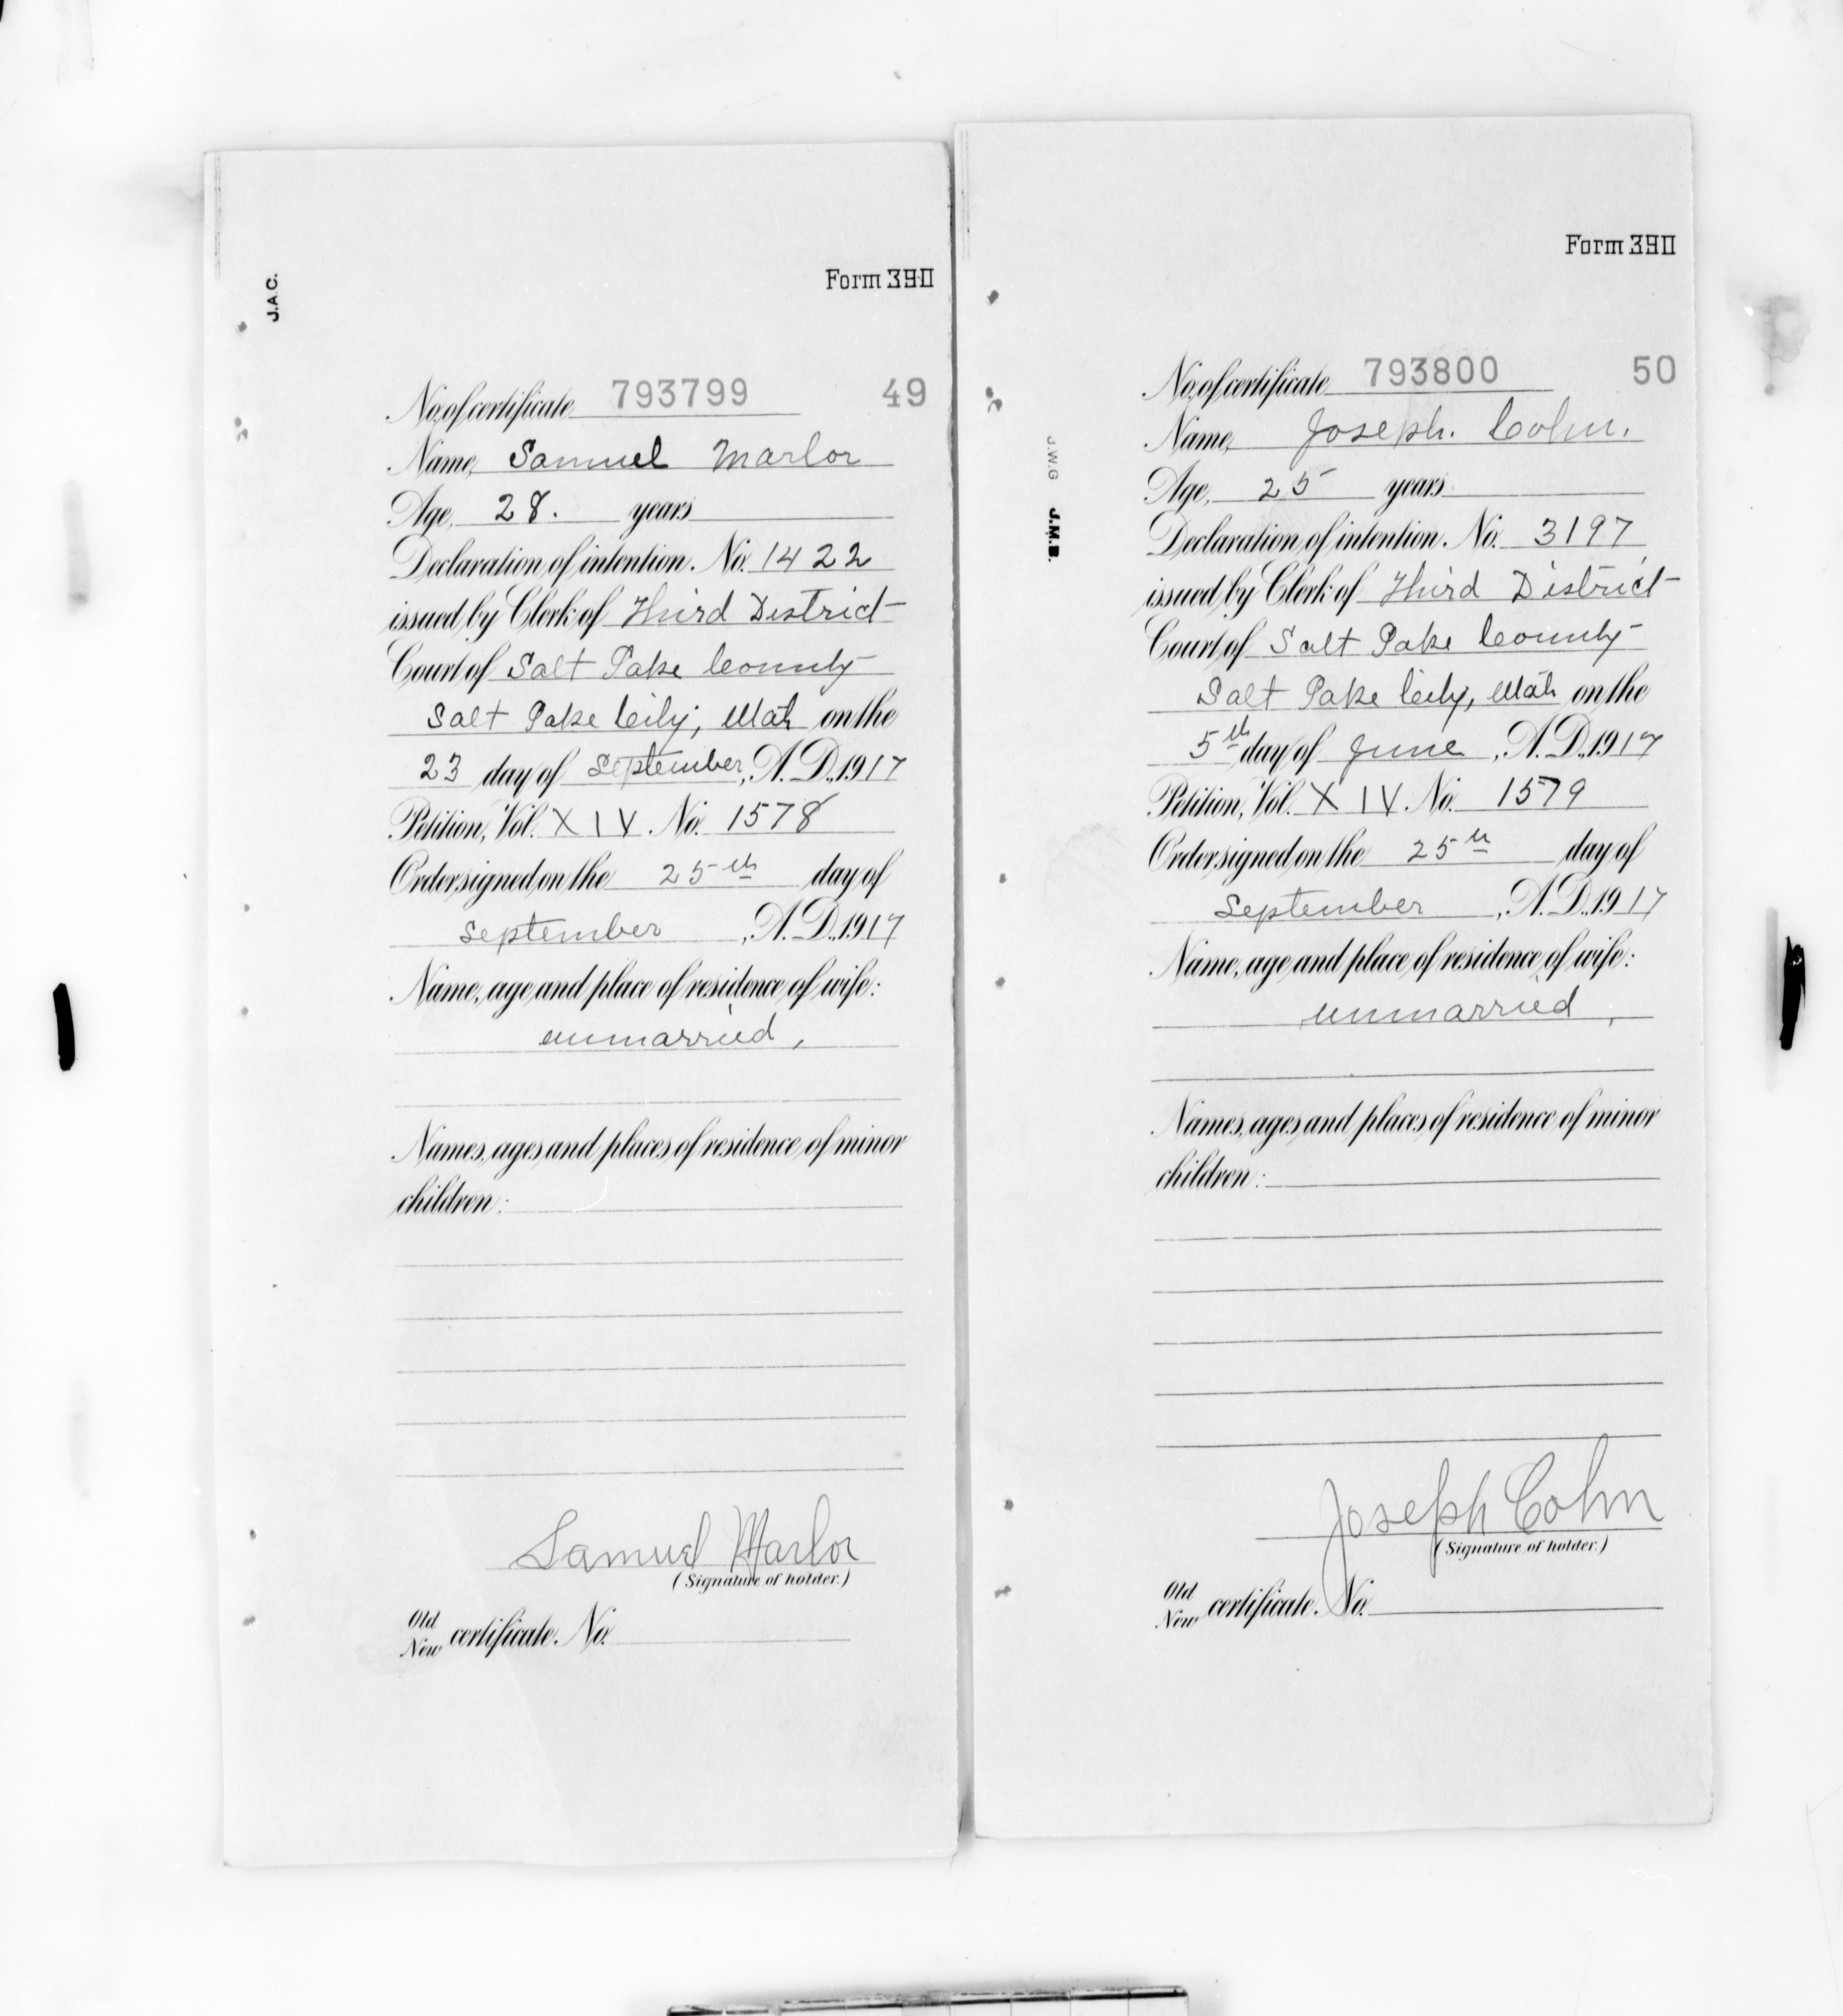 J.A.C.
Form 390
No. of certificate 793799 49
Name, Samuel Marlor
Age, 28. years
Declaration of intention. No. 1422
issued by Clerk of Third District
Court of Salt Lake County
Salt Lake City, Utah on the
23 day of September, A. D., 1917
Petition, Vol. XIV. No. 1578
Order signed on the 25th day of
September, A. D., 1917
Name, age and place of residence of wife:
unmarried,
Names, ages and places of residence of minor
children:
Samuel Marlor
(Signature of holder.)
Old
New certificate. No.
J.W.G J.M.B.
Form 390
No. of certificate 793800 50
Name, Joseph. Cohn.
Age, 25 years
Declaration of intention. No. 3197
issued by Clerk of Third District
Court of Salt Lake County
Salt Lake City, Utah on the
5th day of June, A. D., 1917
Petition, Vol. XIV. No. 1579
Order signed on the 25th day of
September, A. D., 1917
Name, age and place of residence of wife:
unmarried,
Names, ages and places of residence of minor
children:
Joseph Cohn
(Signature of holder.)
Old
New certificate. No.